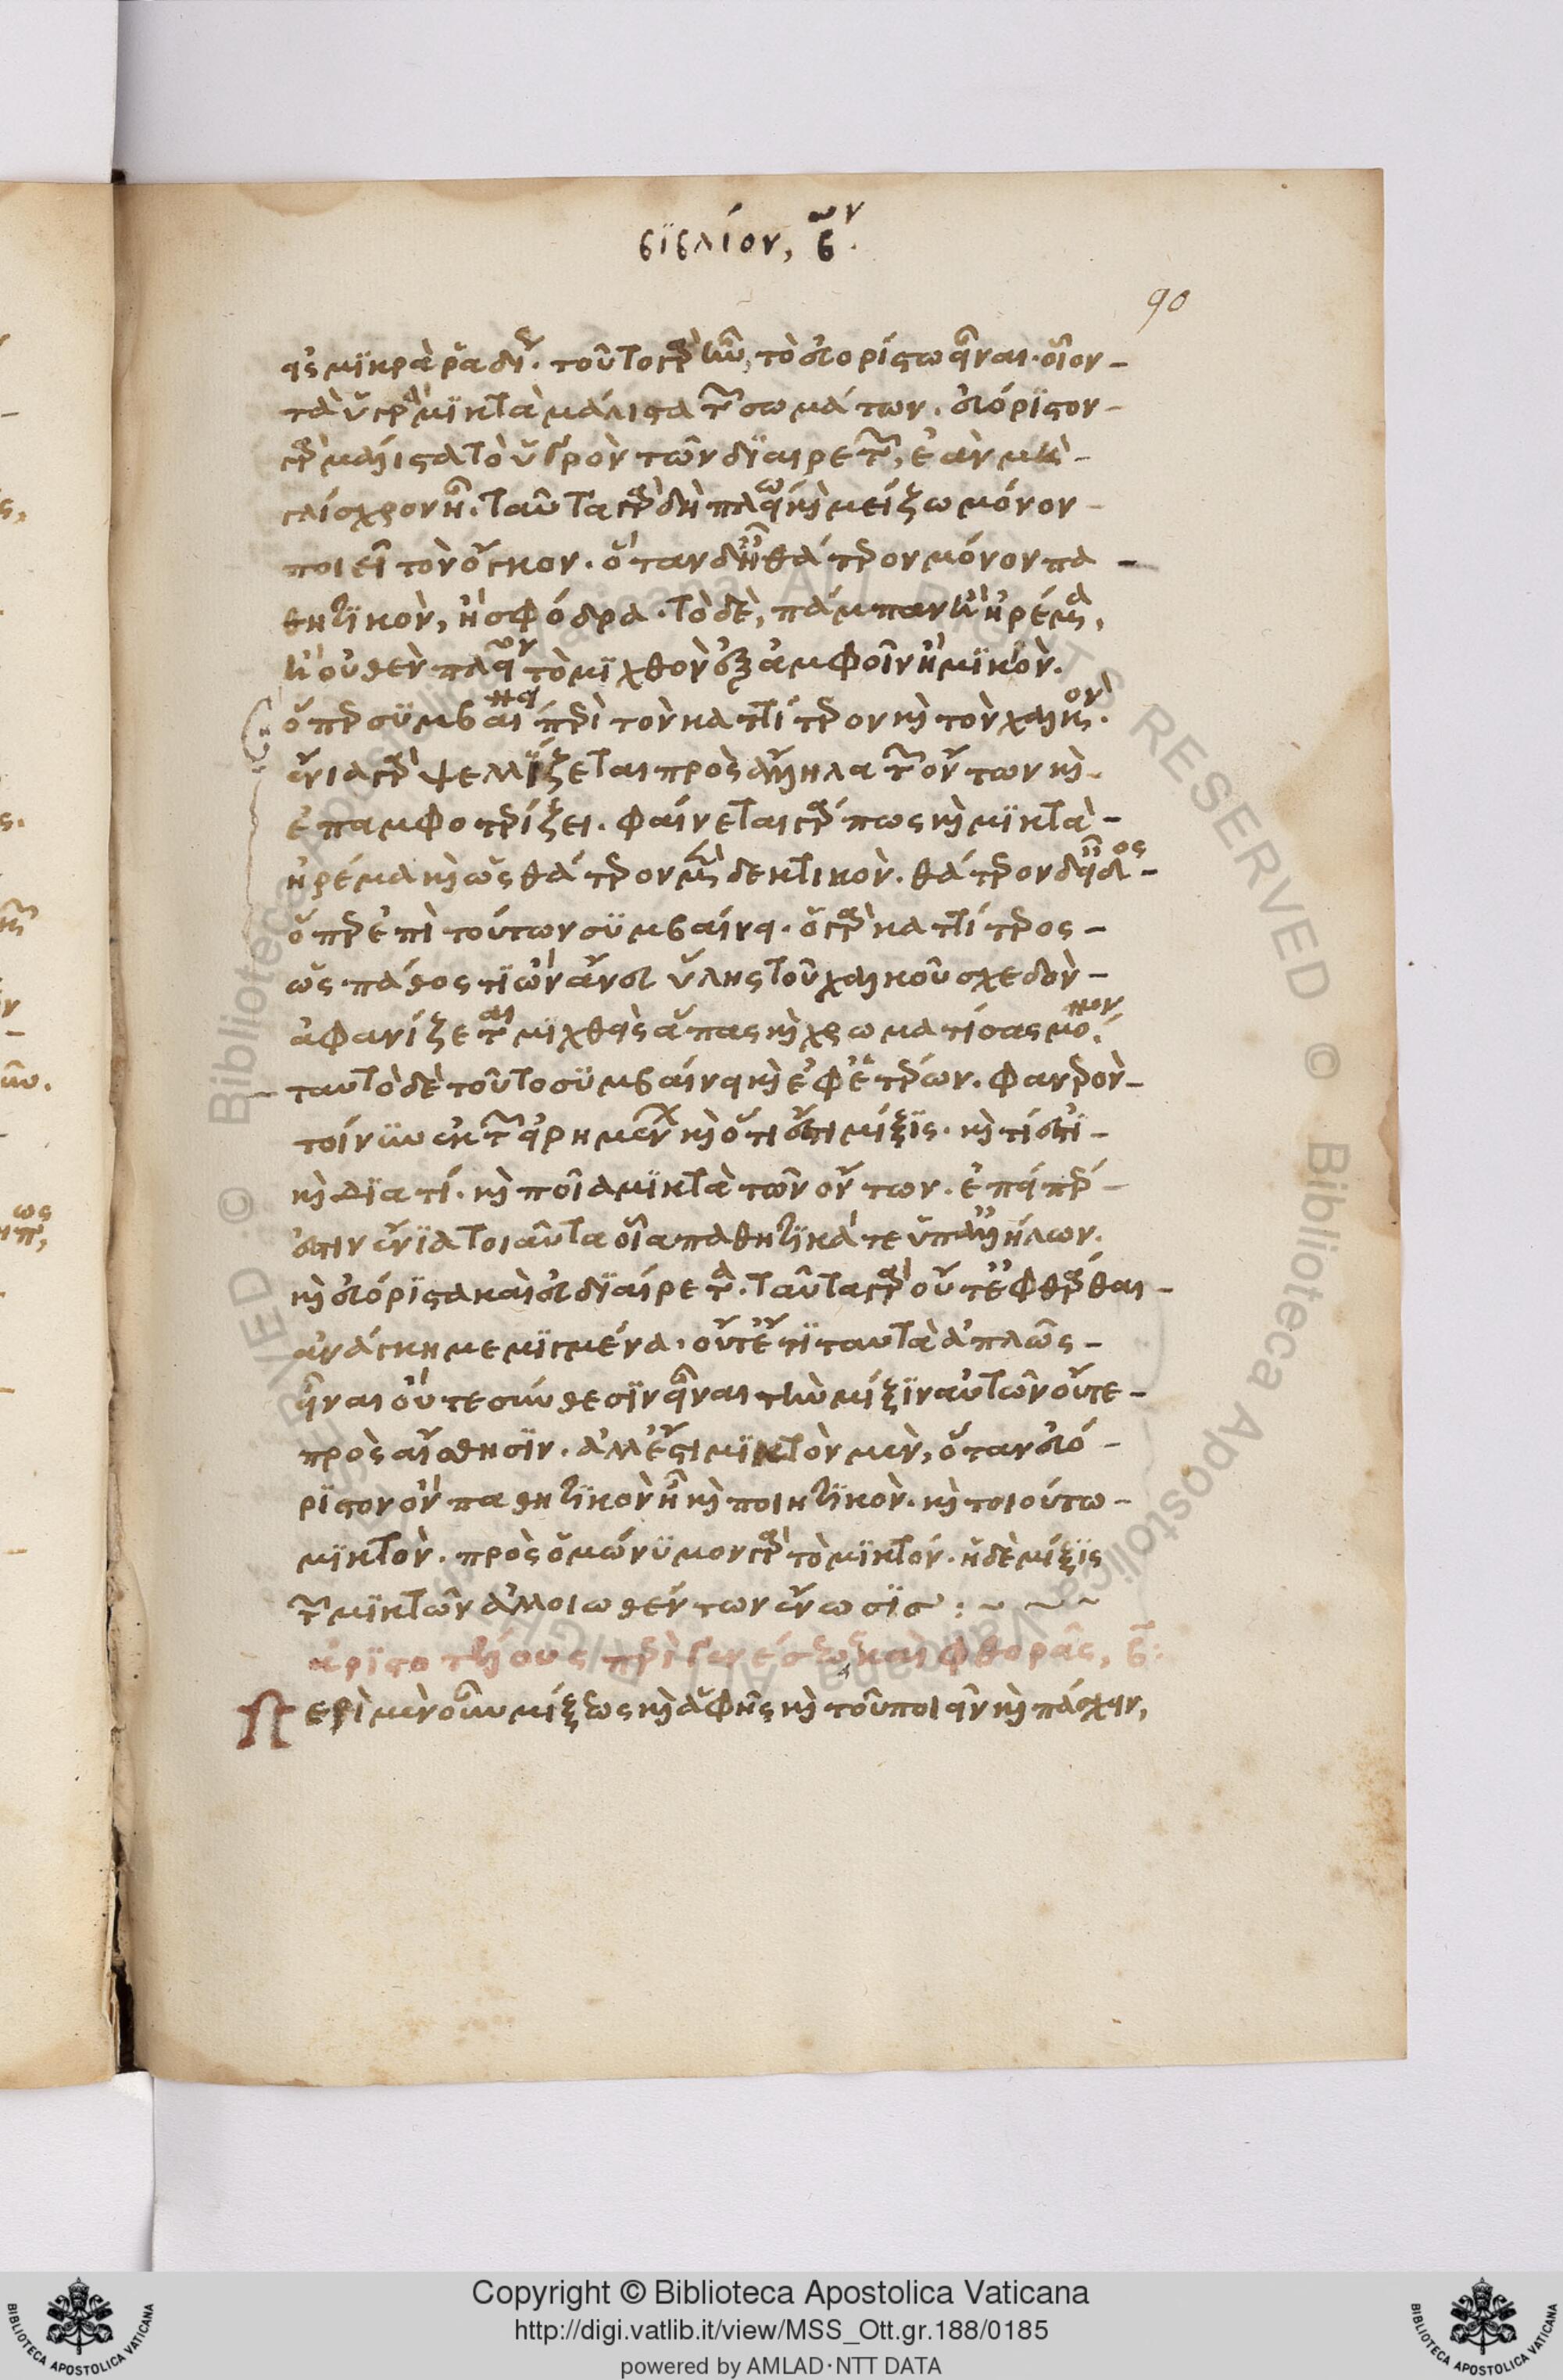 βϊβλίον, βον.
90
εἰς μϊκρὰ ῥᾳδί. τοῦτο γὰρ ἦν, τὸ εὐορίστω εἶναι. οἷον
τὰ ὑγρὰ μϊκτὰ μάλιστα τῶν σωμάτων. εὐόριστον
γὰρ μάλιστα τὸ ὑγρὸν τῶν δϊαιρετῶν, ἐὰν μὴ
γλίσχρον ἦ. ταῦτα γὰρ δὴ πλείω καὶ μείζω μόνον
ποιεῖ τὸν ὄγκον. ὅταν δ' ἦ θάτερον μόνον πα
θητϊκὸν, ἢ σφόδρα. τὸ δὲ, πάμπαν ἢ ἠρέμα,
ἢ οὐθὲν πλεῖον τὸ μϊχθὲν ἐξ ἀμφοῖν ἢ μϊκρὸν.
ὅπερ συμβαίνει περὶ τὸν καττίτερον καὶ τὸν χαλκόν.
ἔνια γὰρ ψελλΐζεται πρὸς ἄλληλα τῶν ὄντων καὶ
ἐπαμφοτερίζει. φαίνεται γάρ πως καὶ μϊκτὰ
ἠρέμα καὶ ὡς θάτερον μὲν δεκτικὸν. θάτερον δ' εἶδος
ὅπερ ἐπὶ τούτων συμβαίνει. ὁ γὰρ καττίτερος
ὡς πάθος τϊ ὢν ἄνευ ὕλης τοῦ χαλκοῦ σχεδὸν
ἀφανίζεται μιχθεὶς ἅπας καὶ χρωματίσας μόνον.
ταυτὸ δὲ τοῦτο συμβαίνει καὶ ἐφ' ἑτέρων. φανερὸν
τοίνυν ἐκ τῶν εἰρημένων καὶ ὅτι ἔστι μίξϊς. καὶ τί ἐστὶ
καὶ δϊα τί. καὶ ποῖα μϊκτὰ τῶν ὄντων. ἐπείπερ
ἐστὶν ἔνϊα τοιαῦτα οἷα παθητϊκά τε ὑπ' ἀλλήλων.
καὶ εὐόρϊστα καὶ εὐδϊαίρετα. ταῦτα γὰρ οὔτ' ἐφθάρθαι
ἀνάγκη μεμϊγμένα. οὔτ' ἔτϊ ταυτὰ ἁπλῶς
εἶναι οὔτε σύνθεσϊν εἶναι τὴν μίξϊν αὐτῶν οὔτε
πρὸς αἴσθησϊν. ἀλλ' ἔστι μϊκτὸν μὲν, ὅταν εὐό
ρϊστον ὂν παθητϊκὸν ἦ καὶ ποιητϊκὸν. καὶ τοιούτω
μϊκτὸν. πρὸς ὁμώνυμον γὰρ τὸ μϊκτόν. ἡ δὲ μίξϊς
τῶν μϊκτῶν ἀλλοιωθέντων ἕνωσϊς :~ ~ ~
ἀρϊστοτέλους περὶ γενέσεως καὶ φθορᾶς, β:
Περὶ μὲν οὖν μίξεως καὶ ἁφῆς καὶ τοῦ ποιεῖν καὶ πάσχειν,
Copyright © Biblioteca Apostolica Vaticana
http://digi.vatlib.it/view/MSS_Ott.gr.188/0185
powered by AMLAD·NTT DATA